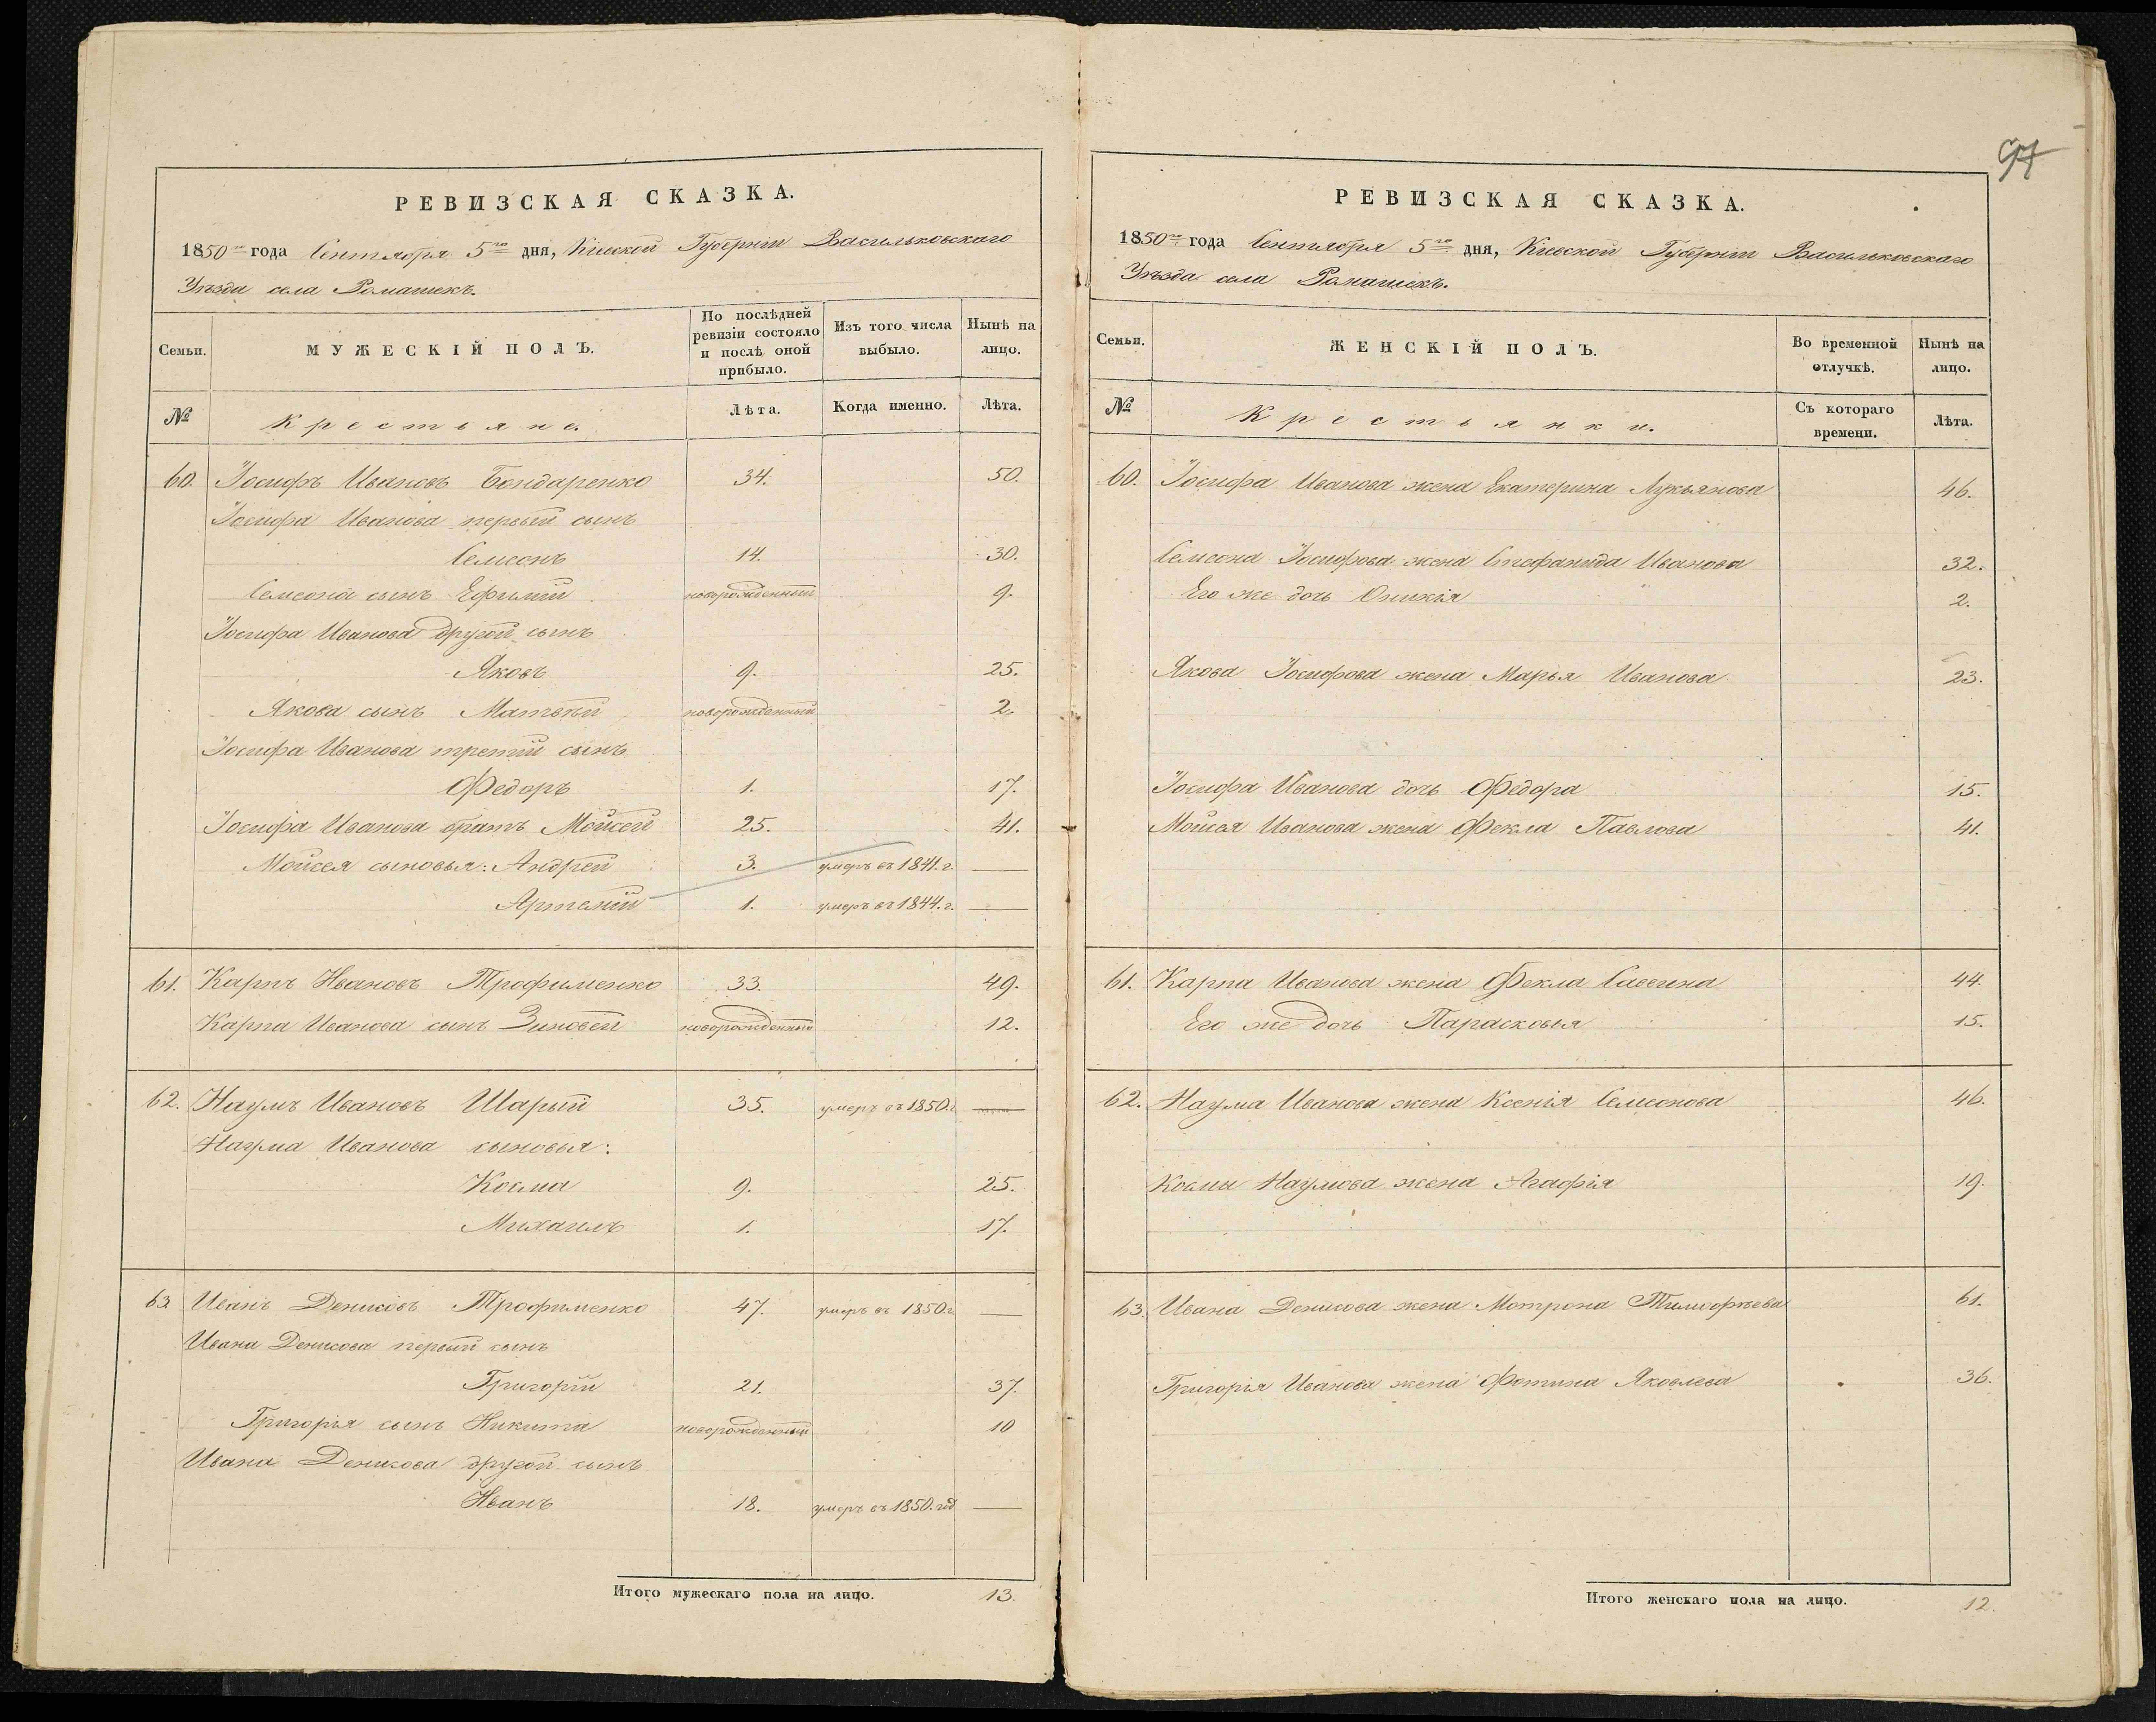 97
РЕВИЗСКАЯ СКАЗКА.
1850го года Сентября 5го дня, Кіевской Губерніи Васильковскаго
Уѣзда села Ромашекъ.
Семьи.
МУЖЕСКІЙ ПОЛЪ.
По послѣдней ревизіи состояло и послѣ оной прибыло.
Изъ того числа выбыло.
Нынѣ на лицо.
№
Крестьяне.
Лѣта.
Когда именно.
Лѣта.
60. Іосифъ Ивановъ Бондаренко 34. 50.
Іосифа Иванова первый сынъ
Семсонъ 14. 30.
Семсона сынъ Ефимій новорожденный 9.
Іосифа Иванова другой сынъ
Яковъ 9. 25.
Якова сынъ Матвѣй новорожденный 2.
Іосифа Иванова третій сынъ
Федоръ 1. 17.
Іосифа Иванова братъ Мойсей 25. 41.
Мойсея сыновья: Андрей 3. умеръ въ 1841. г. —
Артемій 1. умеръ въ 1844. г. —
61. Карпъ Ивановъ Трофименко 33. 49.
Карпа Иванова сынъ Зиновей новорожденный 12.
62. Наумъ Ивановъ Шарый 35. умеръ въ 1850. г —
Наума Иванова сыновья:
Косма 9. 25.
Михаилъ 1. 17.
63 Иванъ Денисовъ Трофименко 47. умеръ въ 1850. г. —
Ивана Денисова первый сынъ
Григорій 21. 37.
Григорія сынъ Никита новорожденный 10
Ивана Денисова другой сынъ
Иванъ 18. умеръ въ 1850. год —
Итого мужескаго пола на лицо. 13.
РЕВИЗСКАЯ СКАЗКА.
1850го года Сентября 5го дня, Кіевской Губерніи Васильковскаго
Уѣзда села Ромашекъ.
Семьи.
ЖЕНСКІЙ ПОЛЪ.
Во временной отлучкѣ.
Нынѣ на лицо.
№
Крестьянки.
Съ котораго времени.
Лѣта.
60. Іосифа Иванова жена Екатерина Лукьянова 46.
Семсона Іосифова жена Стефанида Иванова 32.
Его же дочь Оникія 2.
Якова Іосифова жена Марья Иванова 23.
Іосифа Иванова дочь Федора 15.
Мойсея Иванова жена Фекла Павлова 41.
61. Карпа Иванова жена Фекла Саввина 44.
Его же дочь Парасковья 15.
62. Наума Иванова жена Ксенія Семсонова 46.
Космы Наумова жена Агафія 19.
63. Ивана Денисова жена Мотрона Тимофѣева 61.
Григорія Иванова жена Фотина Яковлева 36.
Итого женскаго пола на лицо. 12.